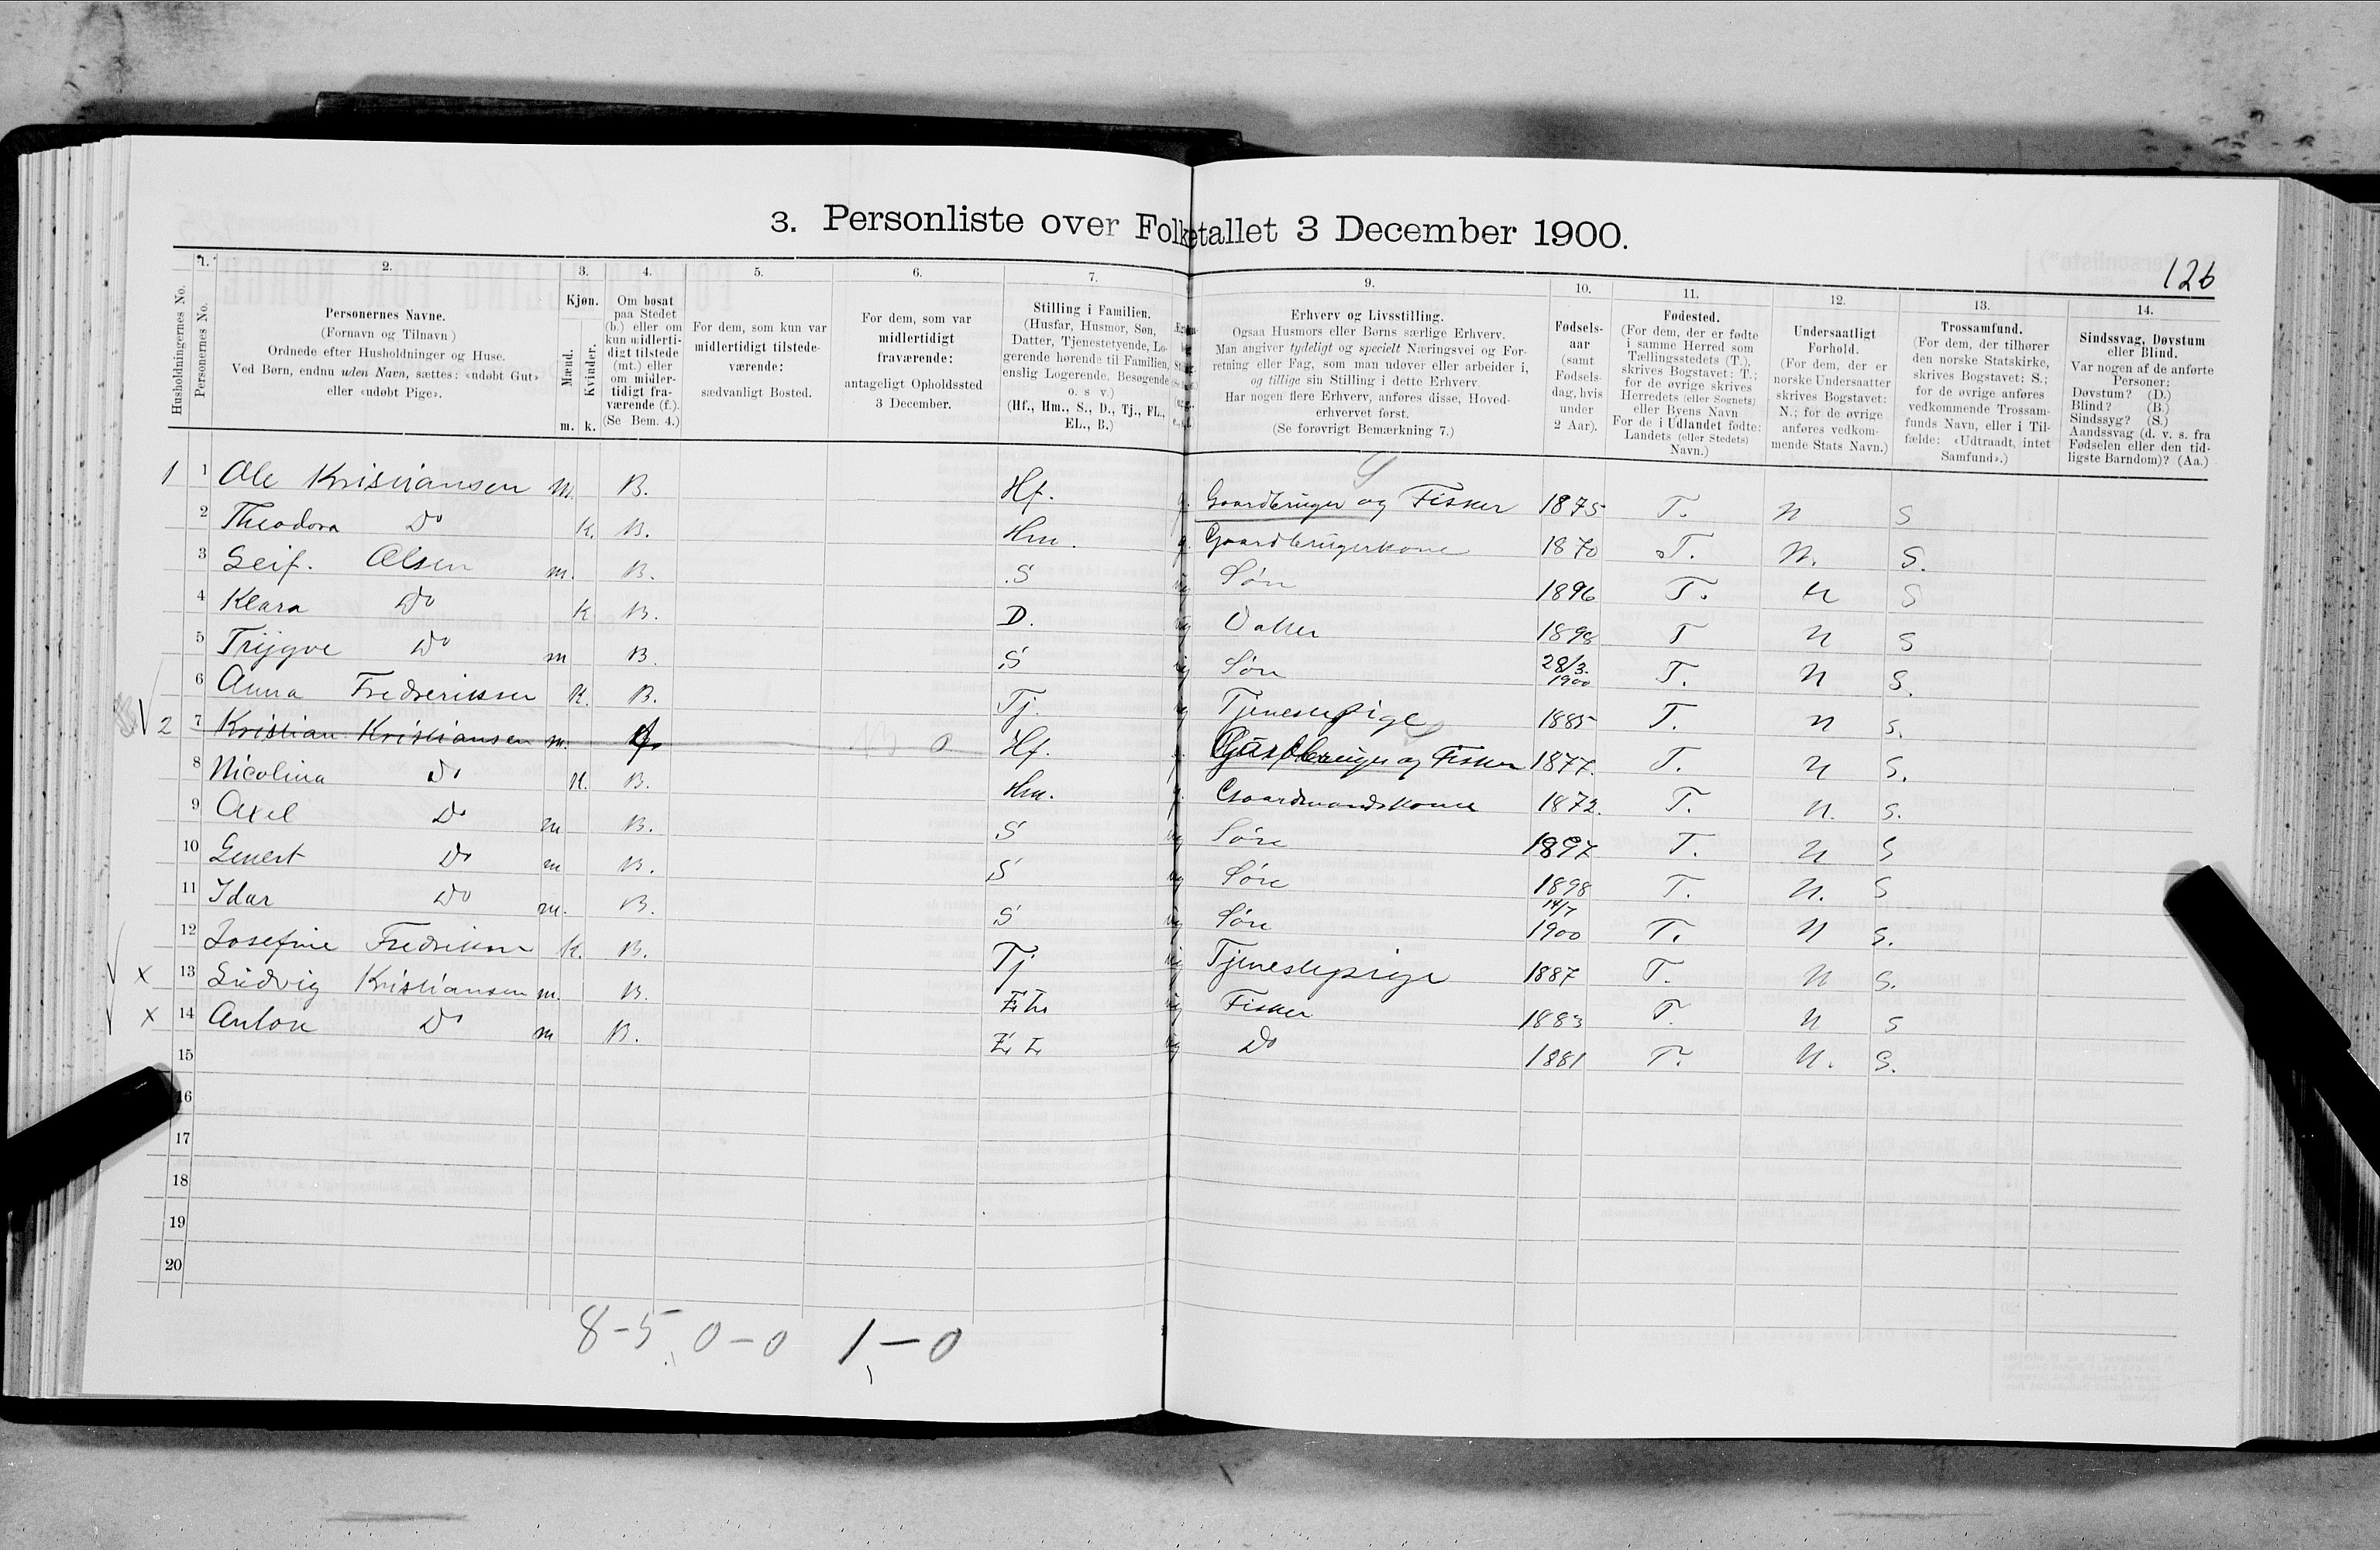 3. Personliste over Folketallet 3 December 1900.
126
1. 2. 3. 4. 5. 6. 7. 9. 10. 11. 12. 13. 14.
Husholdningernes No.
Personernes No.
Personernes Navne.
(Fornavn og Tilnavn)
Ordnede efter Husholdninger og Huse.
Ved Børn, endnu uden Navn, sættes: «udøbt Gut»
eller «udøbt Pige».
Kjøn.
Mænd.
Kvinder.
m. k.
Om bosat
paa Stedet
(b.) eller om
kun midlerti-
digt tilstede
(mt.) eller
om midler-
tidigt fra-
værende (f.).
(Se Bem. 4.)
For dem, som kun var
midlertidigt tilstede-
værende:
sædvanligt Bosted.
For dem, som var
midlertidigt
fraværende:
antageligt Opholdssted
3 December.
Stilling i Familien.
(Husfar, Husmor, Søn,
Datter, Tjenestetyende, Lo-
gerende hørende til Familien,
enslig Logerende, Besøgende
o. s v.)
(Hf., Hm., S., D., Tj., FL.,
EL., B.)
Erhverv og Livsstilling.
Ogsaa Husmors eller Børns særlige Erhverv.
Man angiver tydeligt og specielt Næringsvei og For-
retning eller Fag, som man udøver eller arbeider i,
og tillige sin Stilling i dette Erhverv.
Har nogen flere Erhverv, anføres disse, Hoved-
erhvervet først.
(Se forøvrigt Bemærkning 7.)
Fødsels-
aar
(samt
Fødsels-
dag, hvis
under
2 Aar).
Fødested.
(For dem, der er fødte
i samme Herred som
Tællingsstedets (T.),
skrives Bogstavet: T.;
for de øvrige skrives
Herredets (eller Sognets)
eller Byens Navn
For de i Udlandet fødte:
Landets (eller Stedets)
Navn.)
Undersaatligt
Forhold.
(For dem, der er
norske Undersaatter
skrives Bogstavet:
N.; for de øvrige
anføres vedkom-
mende Stats Navn.)
Trossamfund.
(For dem, der tilhører
den norske Statskirke,
skrives Bogstavet: S.;
for de øvrige anføres
vedkommende Trossam-
funds Navn, eller i Til-
fælde: «Udtraadt, intet
Samfund».)
Sindssvag, Døvstum
eller Blind.
Var nogen af de anførte
Personer:
Døvstum? (D.)
Blind? (B.)
Sindssyg? (S.)
Aandssvag (d. v. s. fra
Fødselen eller den tid-
ligste Barndom)? (Aa.)
1 1 Ole Kristiansen m. B. Hf. g. Gaardbruger og Fisker 1875 T. N S
2 Theodora Do K. B. Hm. g. Gaardbrugerkone 1870 T. N. S.
3 Leif. Olsen m. B. S ug Søn 1896 T. N S
4 Klara Do K B. D. ug Datter 1898 T N S
5 Trygve Do m B. S ug Søn 28/3. 1900 T. N S.
6 Anna Fredreriksen K. B. Tj. ug Tjenestepige 1885 T. N S.
2 7 Kristian Kristiansen m. Hf. Gaardbruger og Fisker 1877. T. N S.
8 Nicolina Do K. B. Hm. g. Gaardmandskone 1872. T. N. S.
9 Axel Do m B. S ug Søn 1897 T. N S
10 Do m B. S ug Søn 1898 T. N. S
11 Idar Do m. B. S ug Søn 14/7 1900 T. N S.
12 Josefine Fredriksen K. B. Tj ug Tjenestepige 1887 T. N S.
x 13 Ludvig Kristiansen m. B. E L ug Fisker 1883 T. N S
x 14 Anton Do m B. E L ug Do 1881 T. N. S.
15
16
17
18
19
20
8-5 0-0 1-0